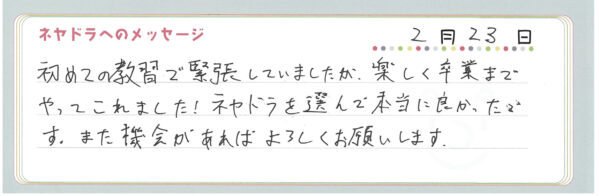 ネヤドラへのメッセージ
2月23日
初めての教習で緊張していましたが、楽しく卒業まで
やってこれました!ネヤドラを選んで本当に良かったで
す。また機会があればよろしくお願いします。